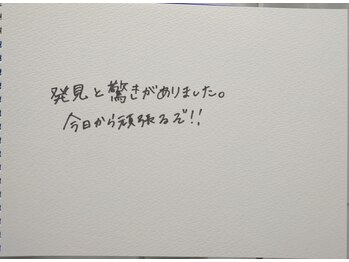 発見と驚きがありました。
今日から頑張るぞ!!